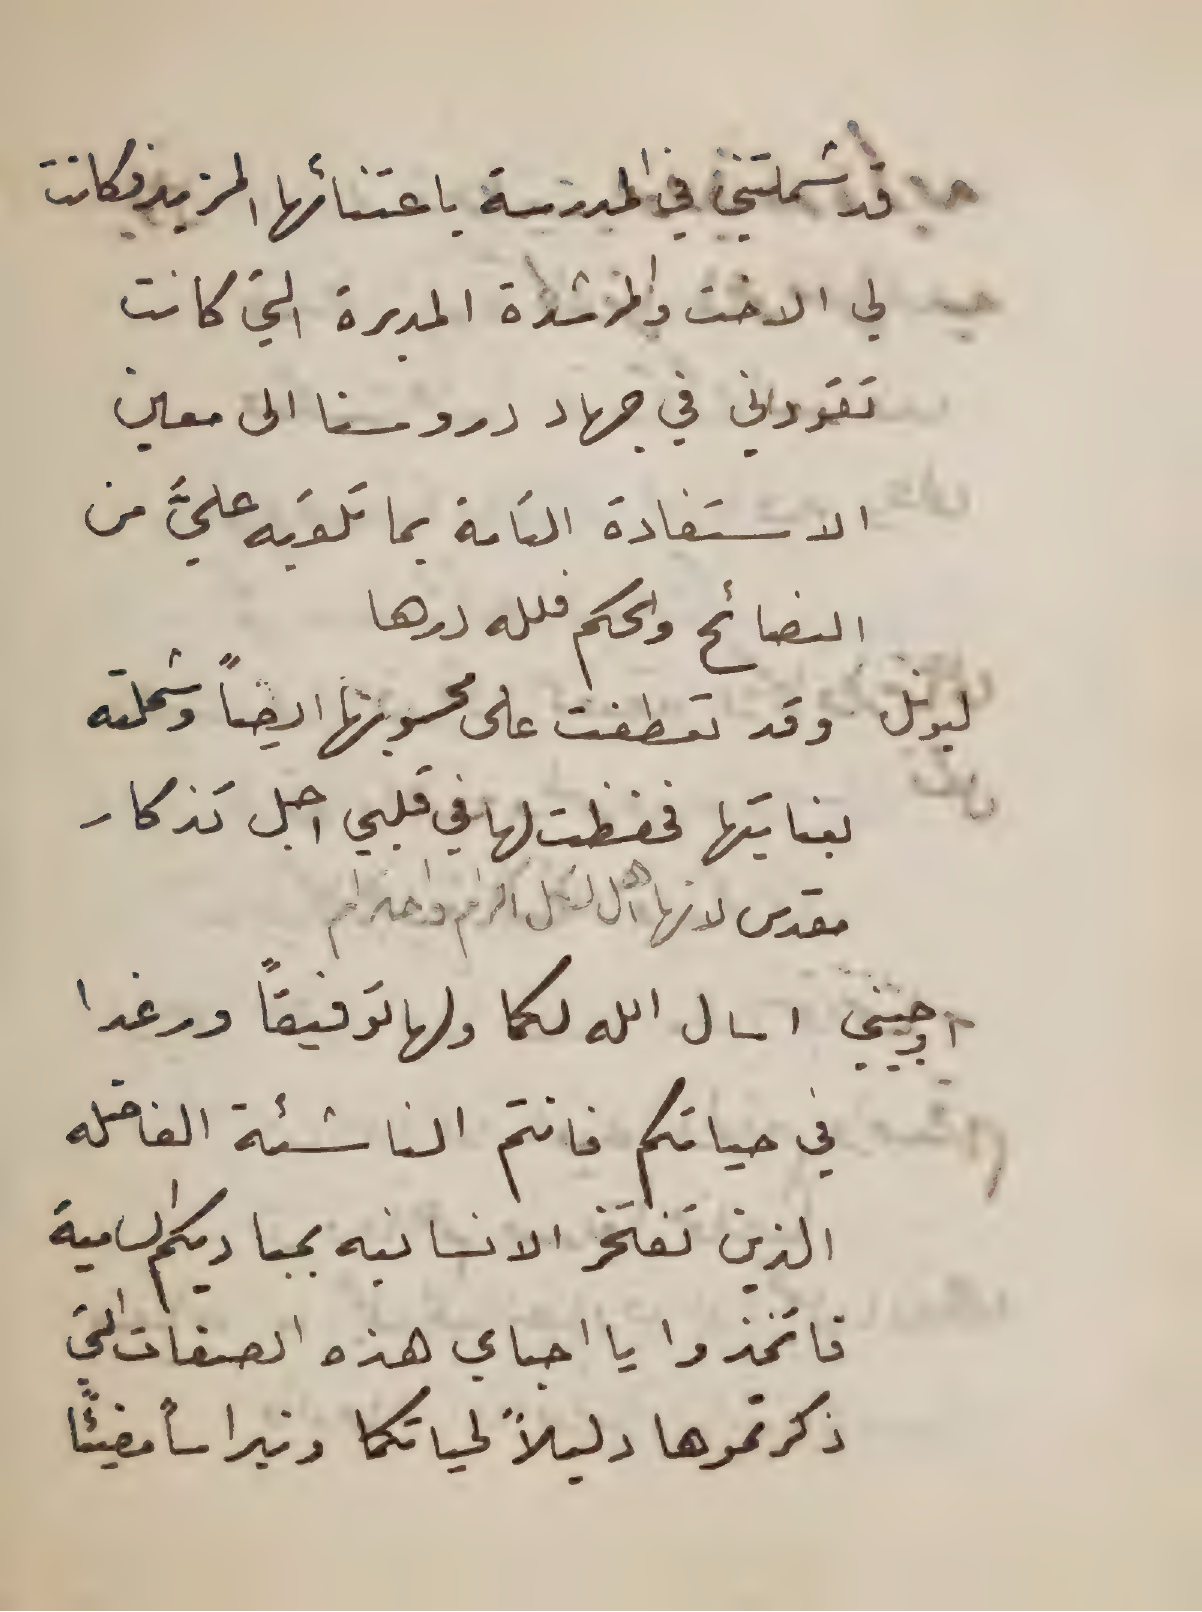 قد شملتني في المدرسة باعتنائها المزيد فكانت
لي الاخت والمرشدة المدبرة التي كانت
تقوداني في جهاد دروسنا الى معين
الاستفادة التامة بما تلقيه عليَّ من
النصائح والحكم فلله درها
ليونيل وقد تعطفت على محسوبتها ايضاً وشملته
بعنايتها فحفظت لها في قلبي اجل تذكار
مقدس لانها اهل لكل اكرام واحترام
اوجيني اسال الله لكما ولها توفيقاً ورغدا
في حياتكم فانتم الناشئة الفاضله
الذين تفتخر الانسانيه بمباديكم السامية
فاتخذوا يا احباي هذه الصفات التي
ذكرتموها دليلاً لحياتكما ونبراساً مضيئاً